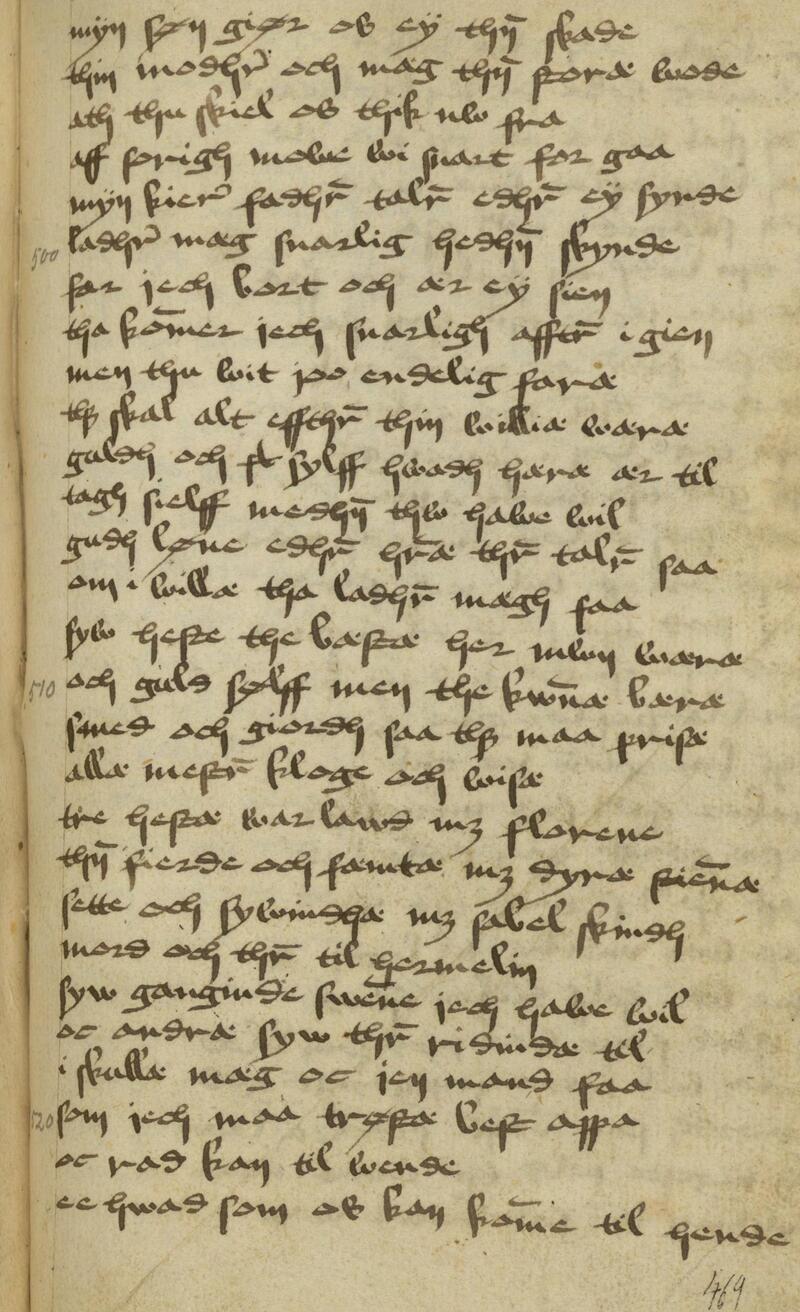 myn søn giør os ey thn̄ skade
thin modhr̄ och mæg thn̄ storæ wode
ath thu skiel os thik nw fra
aff sorigh mowe wi snart for gaa
myn kier̄ fadhr̄ talr̄ edhr̄ ey synde
500 ladhr̄ mæg snarlig hedhn̄ skynde
far jech bort och ær ey sien
tha kom̄er jech snarligh afftr̄ i gien
men thu wit joo endelig faræ
thz skal alt effthr̄ thin williæ wæræ
guldh och sylff hwadh hæræ ær til
tagh sielff medhn̄ thw hawe wil
gudh løne edhr̄ hr̄æ thr̄ talr̄ saa
om i willæ tha ladhr̄ mægh faa
syw heste the bæstæ her mwn wæræ
510 och guld sølff men the kwn̄æ bæræ
smed och giordh saa thz maa prisæ
allæ mestr̄ kloge och wisæ
tre hestæ war lawd mz florene
thn̄ fierde och fæmtæ mz dyræ stien̄æ
sette och sywindhæ mz sabel skindh
mord och thr̄ til hermelin
syw ganginde swen̄e jech hawe wil
oc andræ syw thr̄ ridindæ til
i skullæ mæg oc jen mand faa
520 som jech maa trøstæ best appa
oc rad kan til wende
ee hwad som os kan kom̄e til hende
469